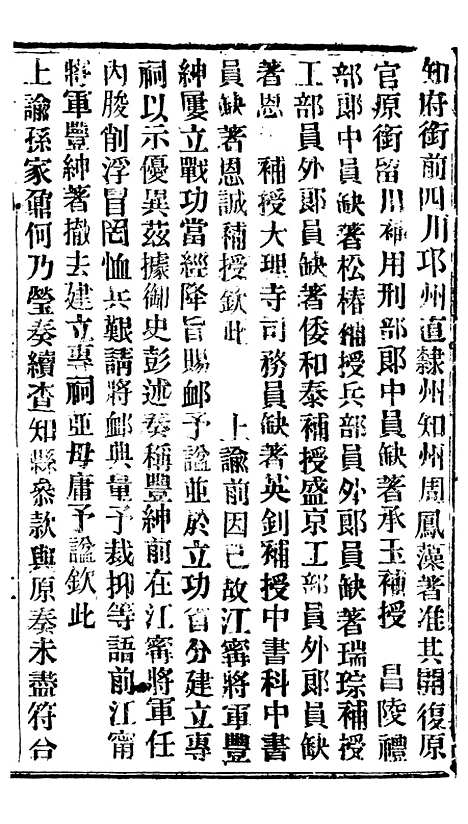 知府銜前四川邛州直隸州知州周鳳藻著准其開復原
官原銜留川補用刑部郎中員缺著承玉補授 昌陵禮
部郎中員缺著松椿補授兵部員外郎員缺著瑞琮補授
工部員外郎員缺著倭和泰補授盛京工部員外郎員缺
著恩 補授大理寺司務員缺著英釗補授中書科中書
員缺著恩誠補授欽此 上諭前因已故江甯將軍豐
紳屢立戰功當經降旨賜衈予諡並於立功省分建立專
祠以示優異茲據御史彭述奏稱豐紳前在江甯將軍任
內朘削浮冒罔恤兵艱請將衈典量予裁抑等語前江甯
將軍豐紳著撤去建立專祠並毋庸予諡欽此
上諭孫家鼐何乃瑩奏續查知縣叅款與原奏未盡符合